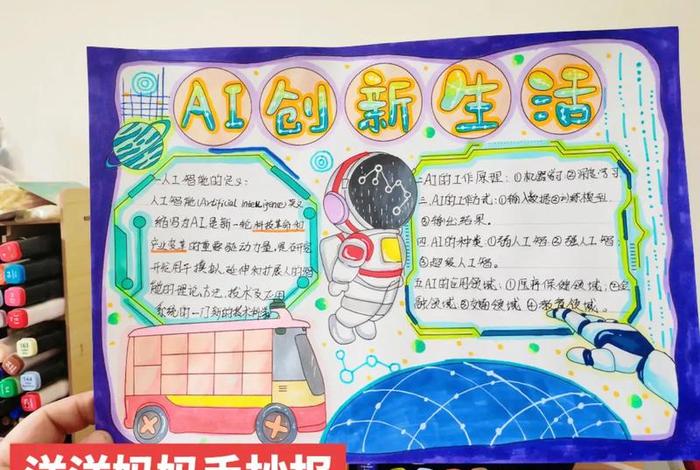 AI创新生活
一人工智能的定义:
人工智能(Artificial Intelligence)意义
缩写为AI.是新一轮科技革命和
产业变革的重要驱动力量,是研究
开发用于模拟、延伸和扩展人的智
能的理论方法、技术及应用
系统的一门新的技术科学
二.AI的工作原理:①机器学习②深度学习
三.AI的工作方式:①输入数据②训练模型
③输出结果。
四.AI的种类:①弱人工智②强人工智;
③超级人工智。
五AI的应用领域:①医疗保健领域;②金
融领域③交通领域④教育领域。
洋洋妈妈手抄报